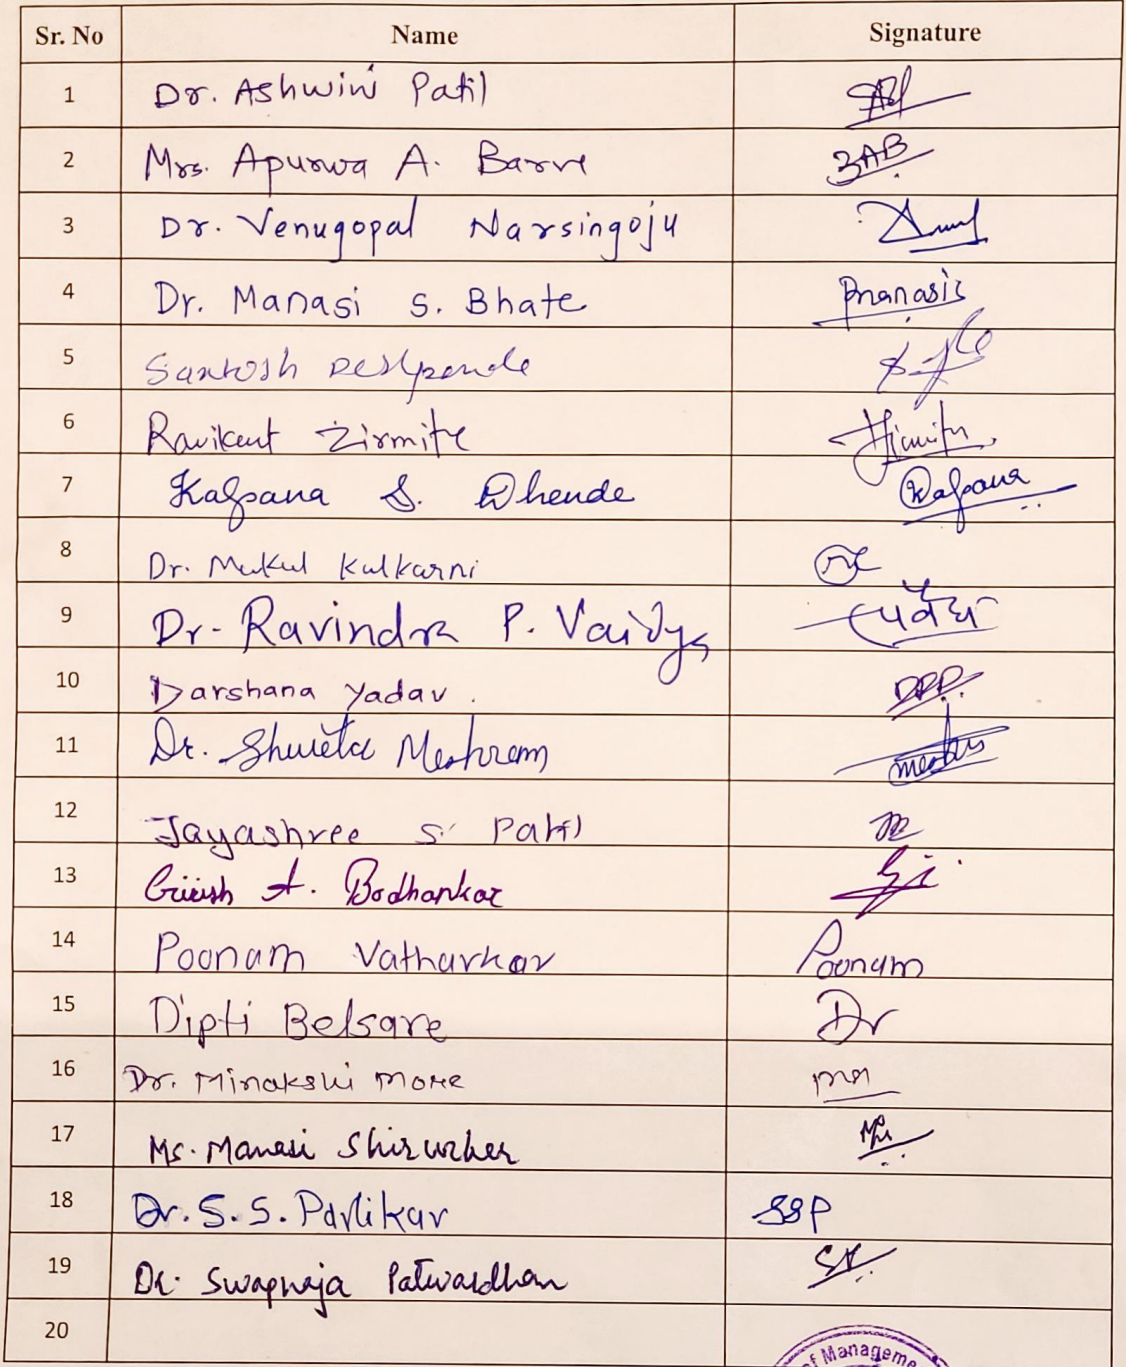 Sr. No Name Signature
1 Dr. Ashwini Patil
2 Mrs. Apurwa A. Barve BAB
3 Dr. Venugopal Narsingoju
4 Dr. Manasi S. Bhate Manasi
5 Santosh Deshpande
6 Ravikant Zirmite Zirmite
7 Kalpana S. Dhende Kalpana
8 Dr. Mukul Kulkarni
9 Dr. Ravindra P. Vaidya
10 Darshana Yadav.
11 Dr. Shweta Meshram
12 Jayashree S. Patil
13 Girish A. Bodhankar
14 Poonam Vatharkar Poonam
15 Dipti Belsare Dr
16 Dr. Minakshi More
17 Ms. Manasi Shirurkar
18 Dr. S. S. Pavlikar SSP
19 Dr. Swapnaja Patwardhan
20
of Manageme